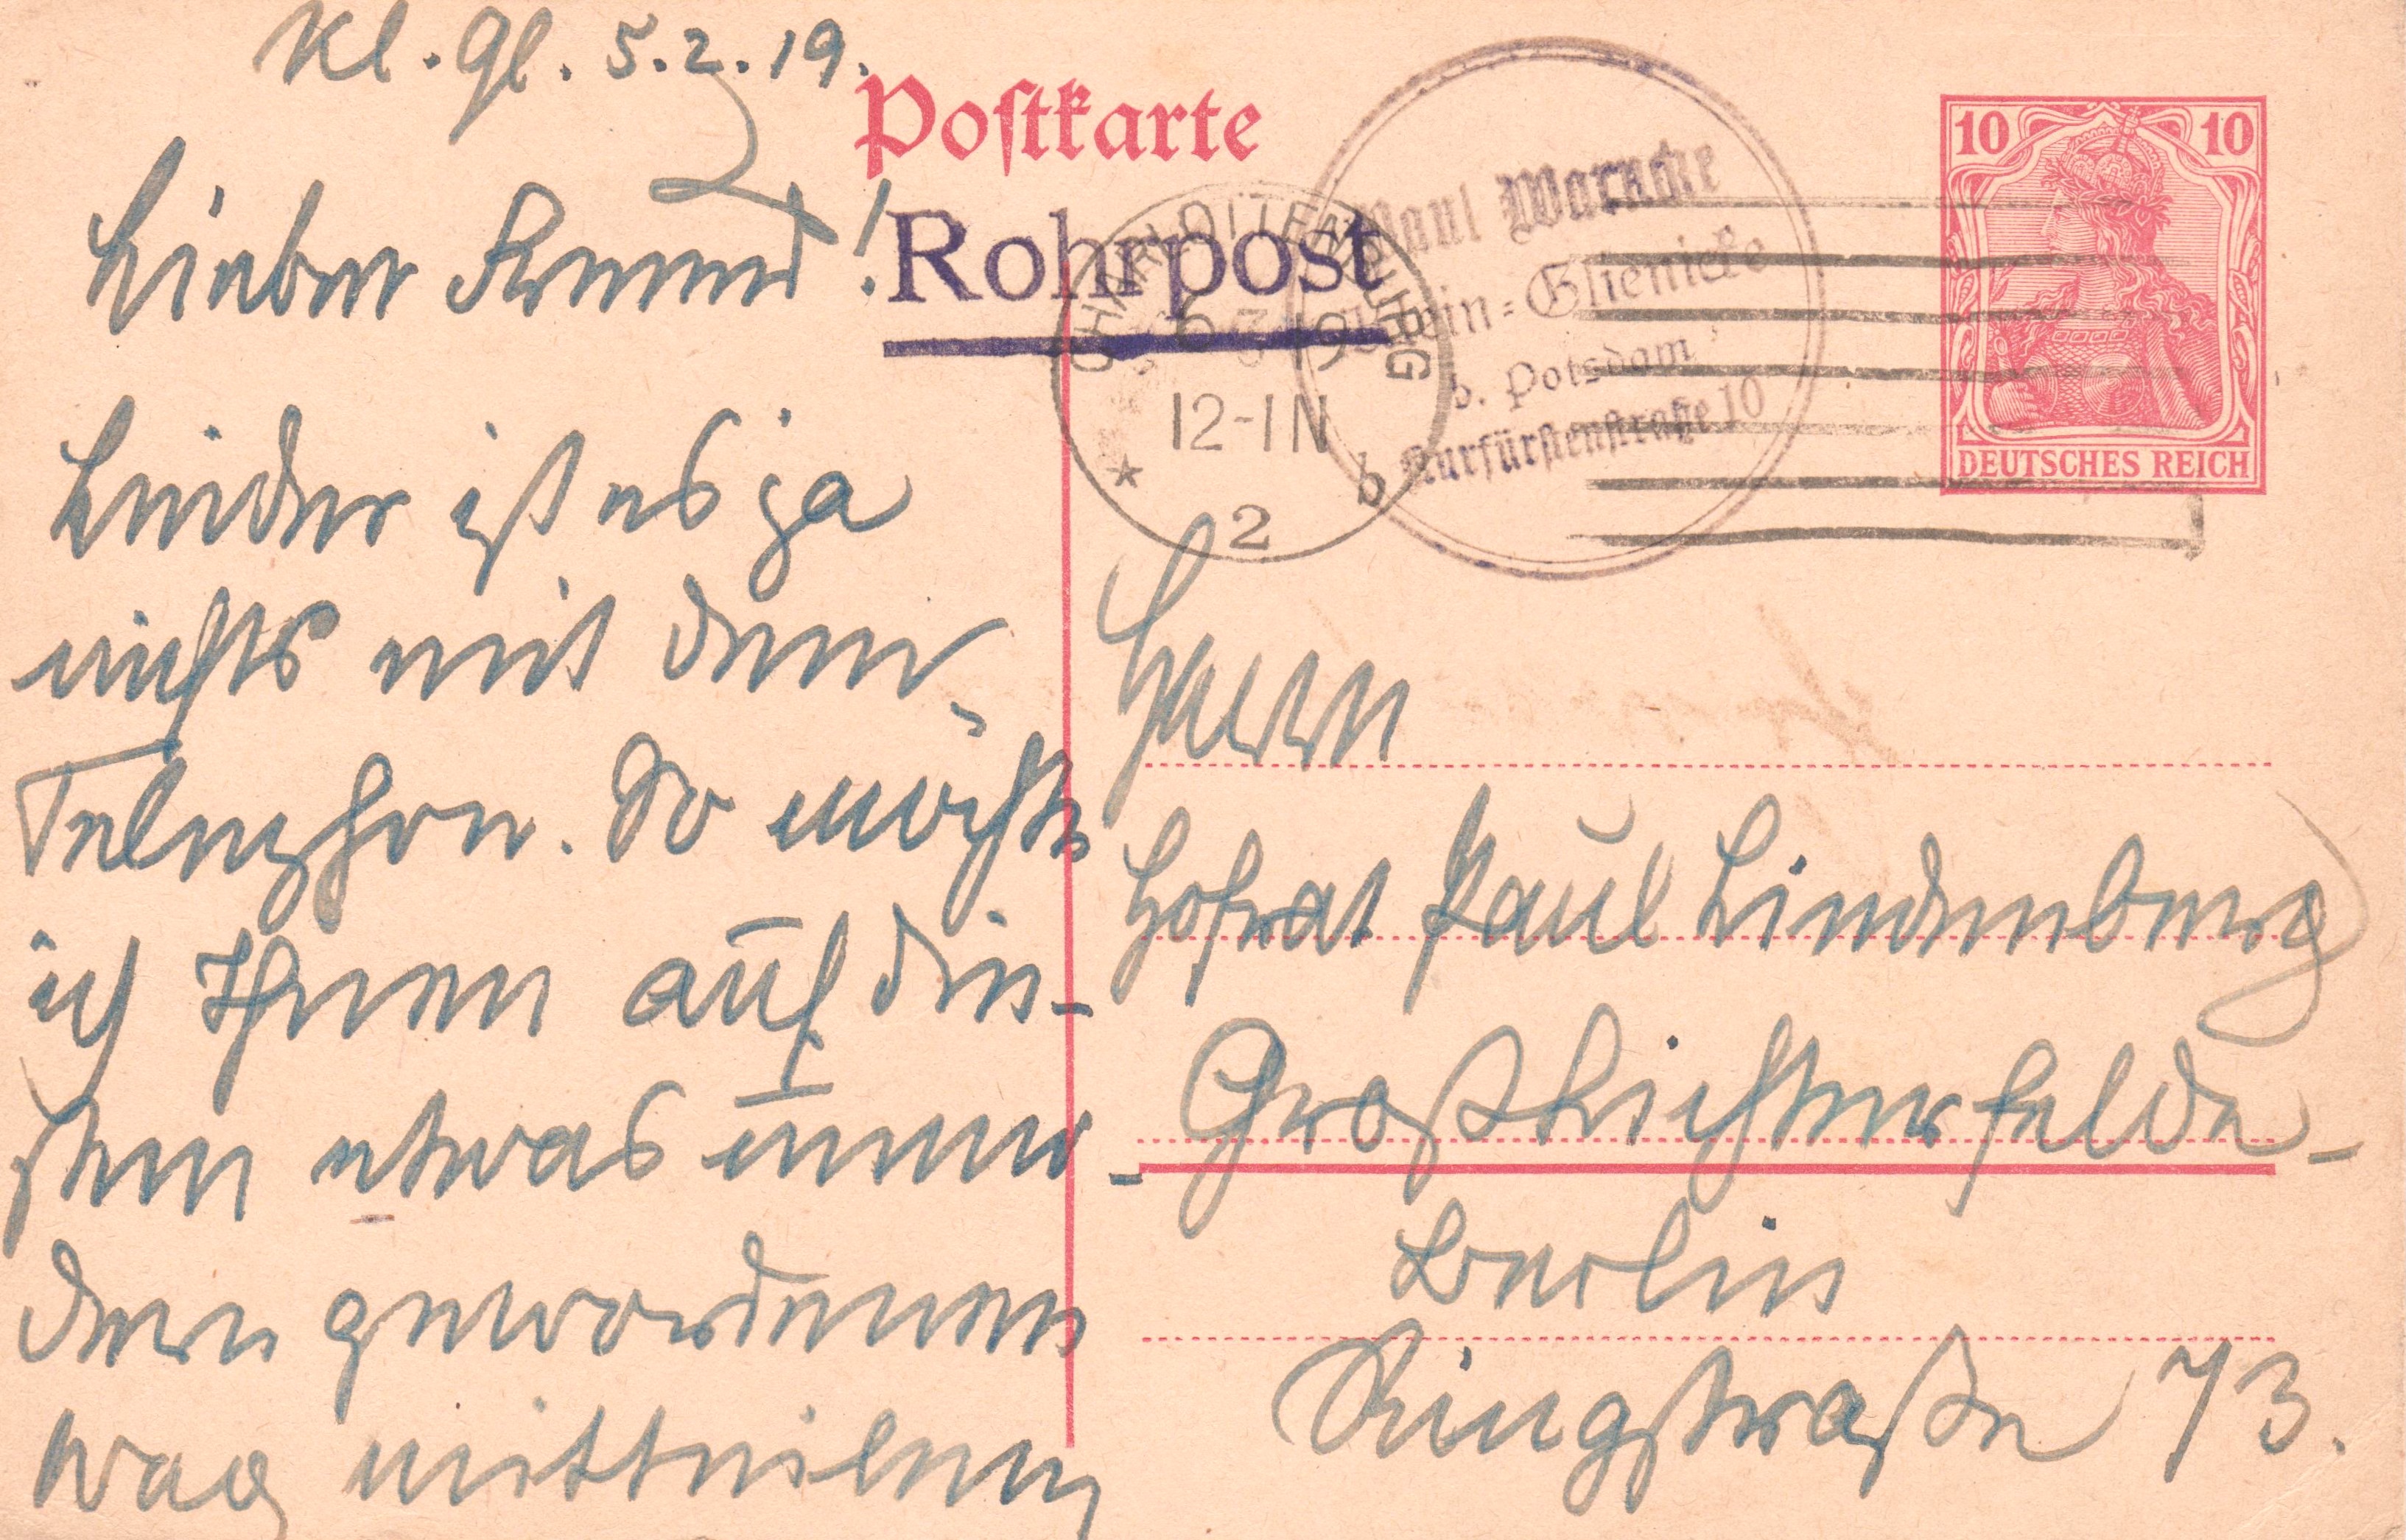 Kl. Gl. 5.2.19.
Lieber Freund!
Leider ist es ja
nichts mit dem
Telephon. So möchte
ich Ihnen auf die-
sem etwas unmo-
dern gewordenen
Weg mitteilen
Postkarte
Rohrpost
CHARLOTTENBURG
6 3 19
12-1 N
* 2 b
Paul Warncke
Klein-Glienicke
b. Potsdam
Kurfürstenstraße 10
10 10
DEUTSCHES REICH
Herrn
Hofrat Paul Lindenberg
Großlichterfelde-
Berlin
Ringstraße 73.